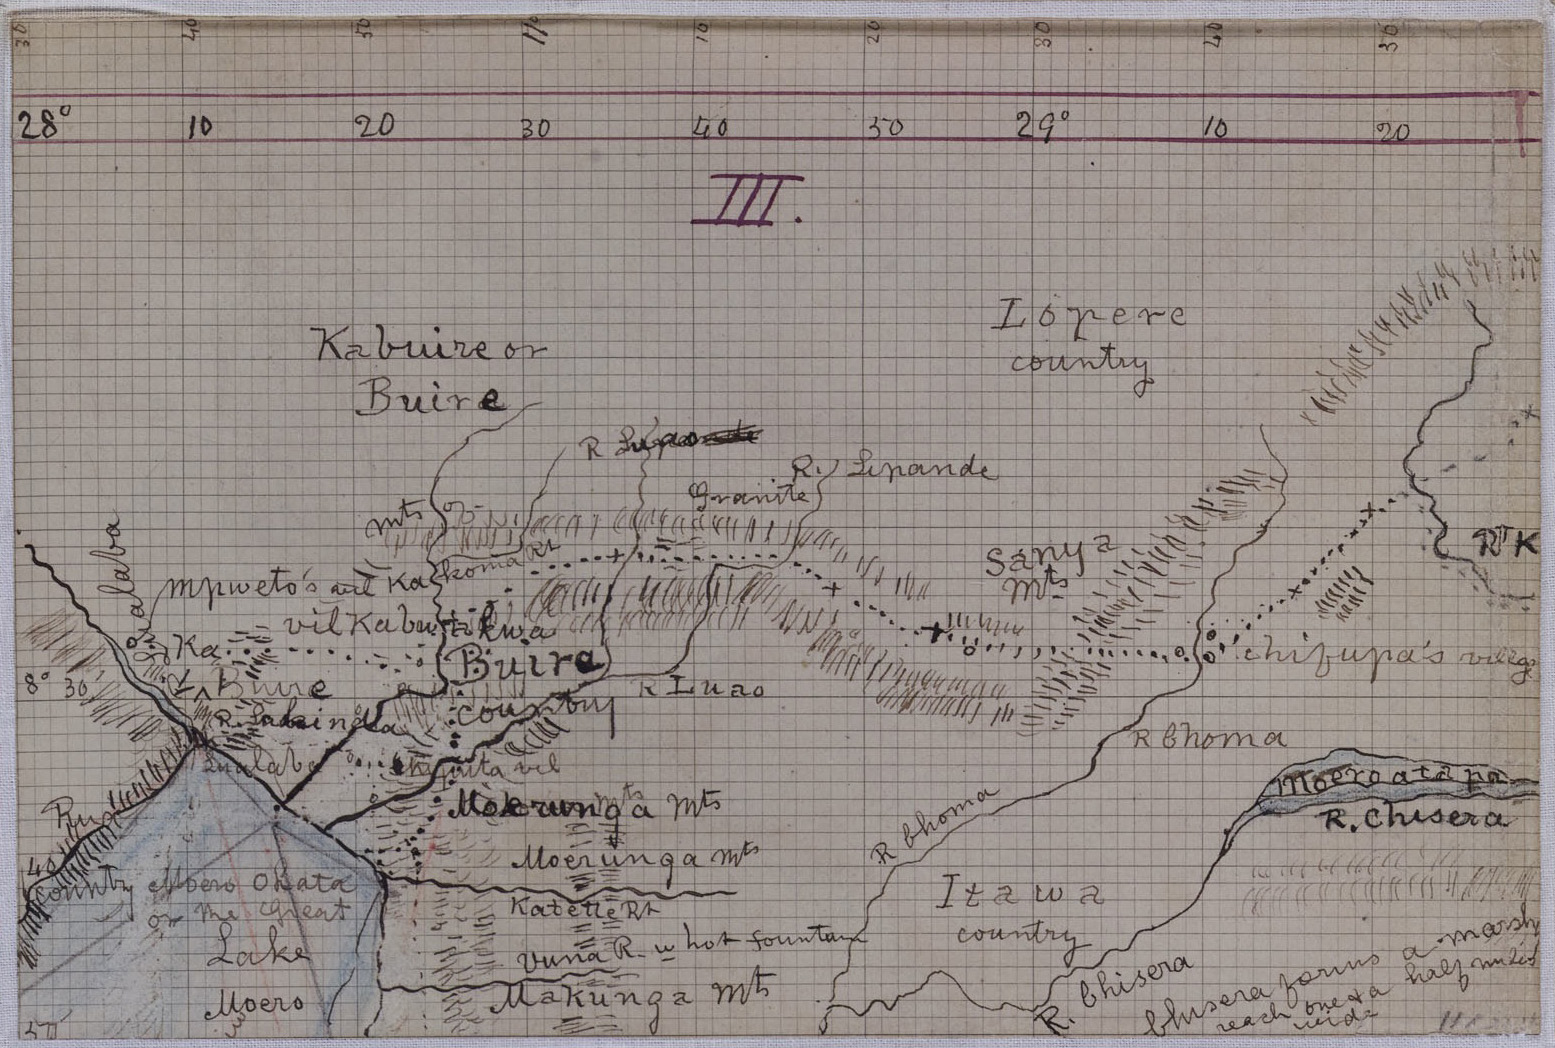 30 40 50 10 20 30 40 50
28° 10 20 30 40 50 29° 10 20
III.
Lopere
country
Kabuire or
Buire
R. Lipande
Granite
mts
R K
Sanya
Mts
Mpweto's vil Ka
koma Rt
vil Kabu
Ka
Buire
chifupa's
8° 30'
Buire
country
R Luao
R Choma
Lualaba
vil
Moero ata pa
R. Chisera
Moerunga Mts
R Choma
40
Moerunga mts
country
Moero Okata
or the Great
Lake
Itawa
country
Katette Rt
Vuna R. w hot fountain
R. Chisera
Makunga Mts
Moero
50
Chisera forms a marsh
reach one & a half miles
wide